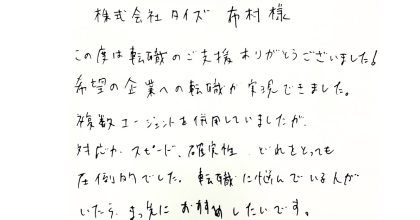 株式会社タイズ 布村様
この度は転職のご支援ありがとうございました!
希望の企業への転職が実現できました。
複数エージェントを併用していましたが、
対応力、スピード、確実性、どれをとっても
圧倒的でした。転職に悩んでいる人が
いたら、まっ先におすすめしたいです。